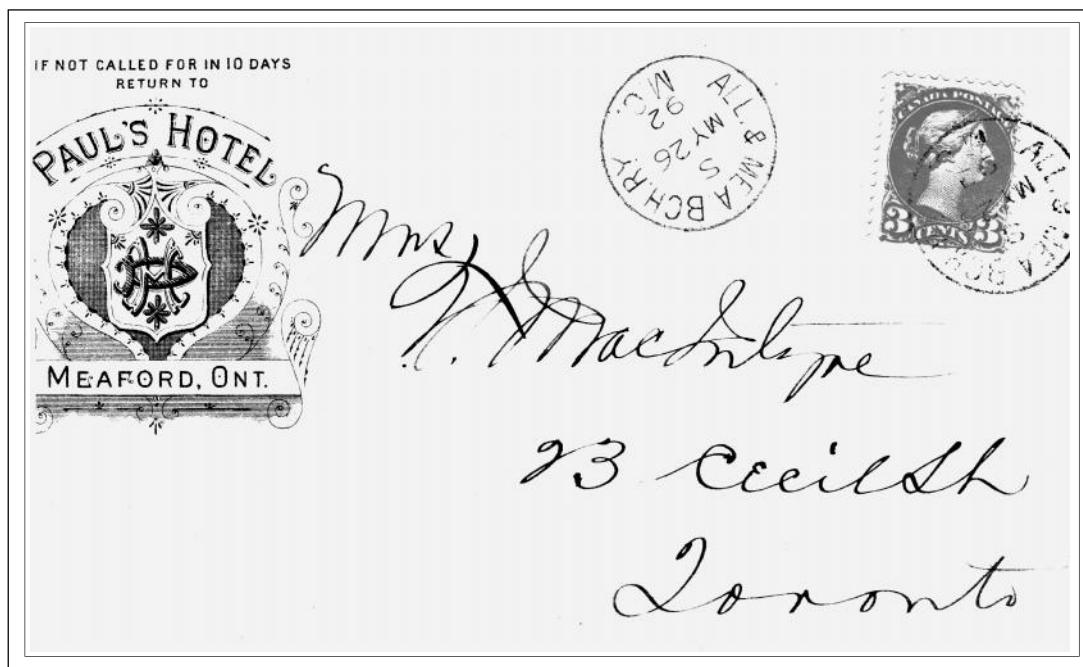 IF NOT CALLED FOR IN 10 DAYS
RETURN TO
PAUL'S HOTEL
MEAFORD, ONT.
ALL. & MEA BCH RY
S
MY 26
92
M.C.
CANADA POSTAGE
3 CENTS 3
Mrs
MacIntyre
23 Cecil St
Toronto